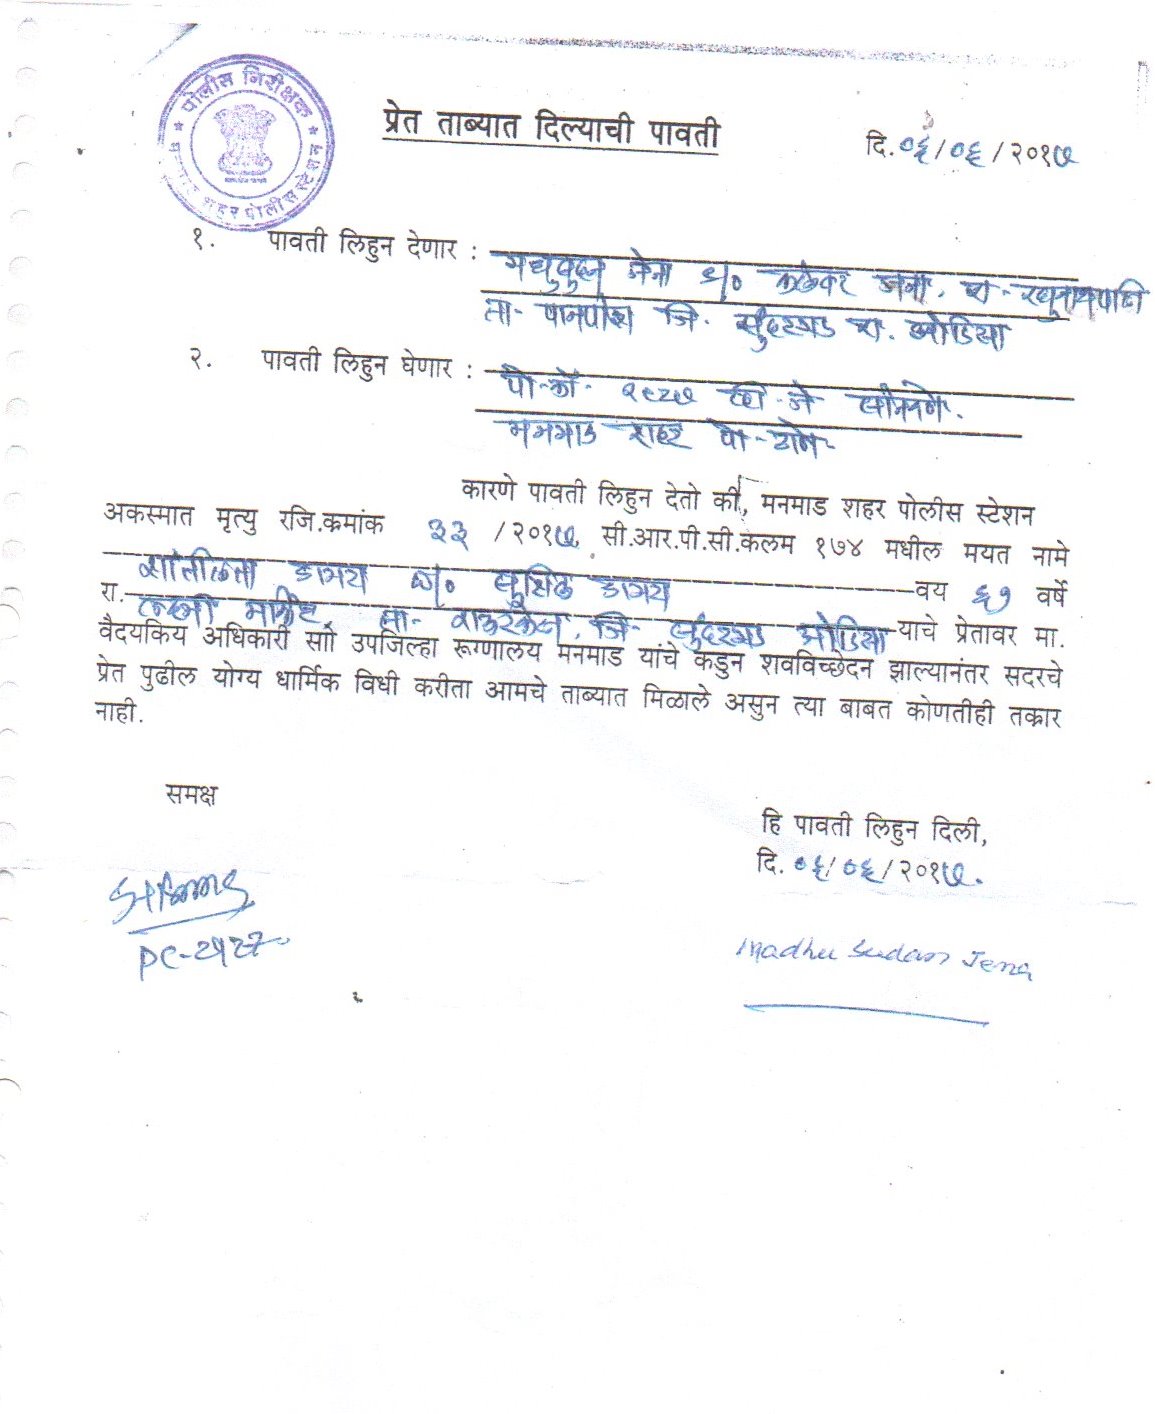 पोलीस निरीक्षक
शहर पोलीस स्टेशन
प्रेत ताब्यात दिल्याची पावती
दि. ०६/०६/२०१७
१. पावती लिहुन देणार : मधुसुदन जेना जेना, रा-
ता- पानपोश जि. सुंदरगड रा. ओडिसा
२. पावती लिहुन घेणार : पो-कॉ-
मनमाड शहर पो-
कारणे पावती लिहुन देतो की, मनमाड शहर पोलीस स्टेशन
अकस्मात मृत्यु रजि.क्रमांक ३३ /२०१७ सी.आर.पी.सी.कलम १७४ मधील मयत नामे
वय ६१ वर्षे
रा. लक्ष्मी मार्केट, ता- राऊरकेला, जि- सुंदरगड ओडिसा याचे प्रेतावर मा.
वैदयकिय अधिकारी साो उपजिल्हा रूग्णालय मनमाड यांचे कडुन शवविच्छेदन झाल्यानंतर सदरचे
प्रेत पुढील योग्य धार्मिक विधी करीता आमचे ताब्यात मिळाले असुन त्या बाबत कोणतीही तक्रार
नाही.
समक्ष
हि पावती लिहुन दिली,
दि. ०६/०६/२०१७.
PC-
Madhu Sudan Jena